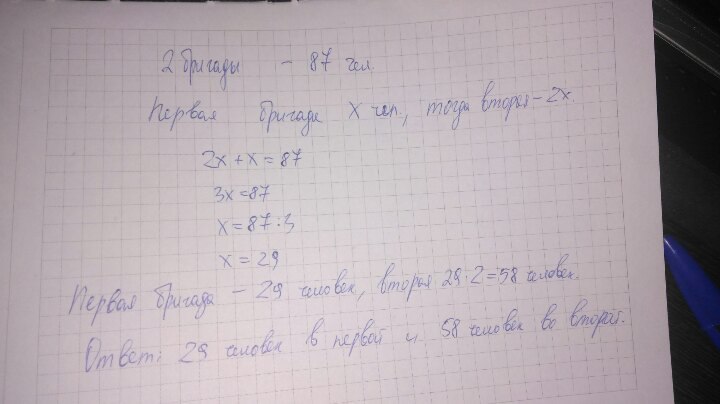 2 бригады - 87 чел.
Первая бригада x чел., тогда вторая - 2x.
2x + x = 87
3x = 87
x = 87 : 3
x = 29
Первая бригада - 29 человек, вторая 29 · 2 = 58 человек.
Ответ: 29 человек в первой и 58 человек во второй.